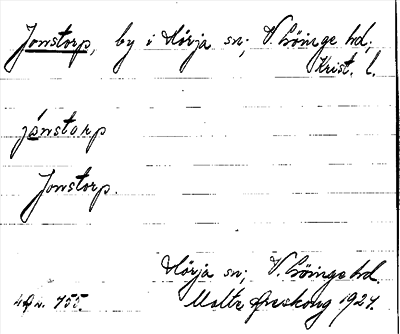 Jonstorp, by i Hörja sn; V. Göinge hd,
Krist. l.
jånstorp
Jonstorp.
Hörja sn; V. Göinge hd.
755. 1924.